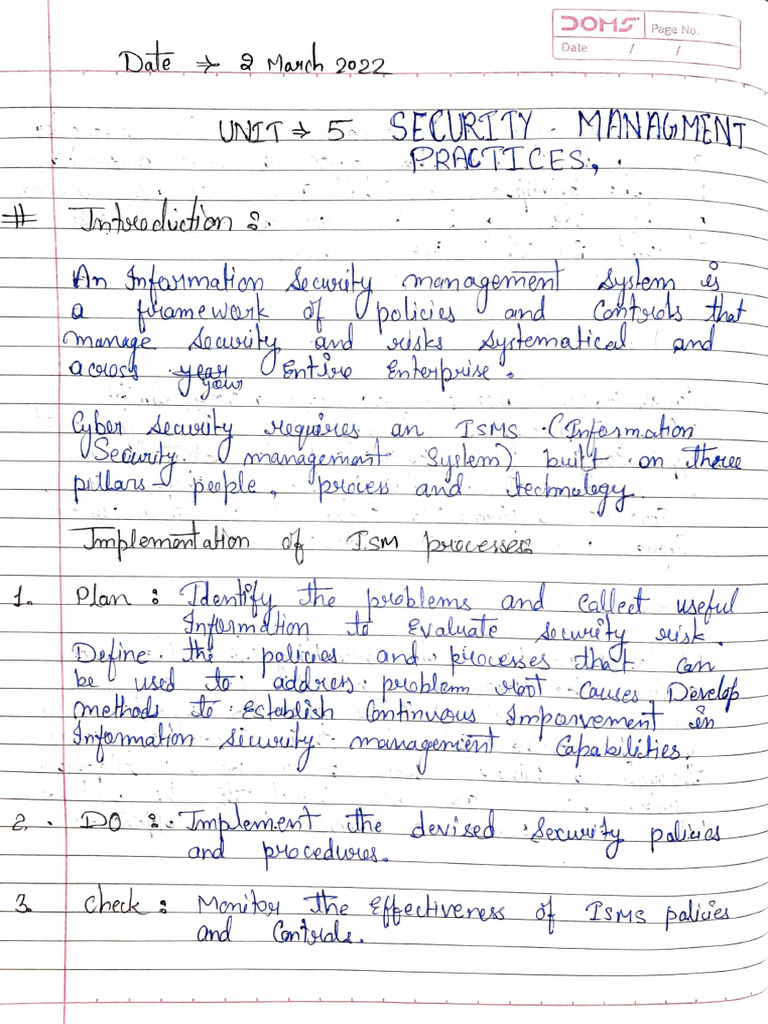 DOMS Page No.
Date / /
Date → 2 March 2022
UNIT → 5 SECURITY MANAGMENT
PRACTICES,
# Introduction :
An Information Security management System is
a framework of policies and Controls that
manage Security and risks Systematical and
across year Entire Enterprise.
your
Cyber Security requires an ISMS (Information
Security management System) built on three
pillars - people, process and technology.
Implementation of ISM processes:
1. Plan : Identify the problems and collect useful
Information to Evaluate Security risk.
Define the policies and processes that can
be used to address problem root causes Develop
methods to Establish Continuous Imporvement in
Information Security management Capabilities.
2. DO : Implement the devised Security policies
and procedures.
3. Check : Monitor the Effectiveness of ISMS policies
and Controls.